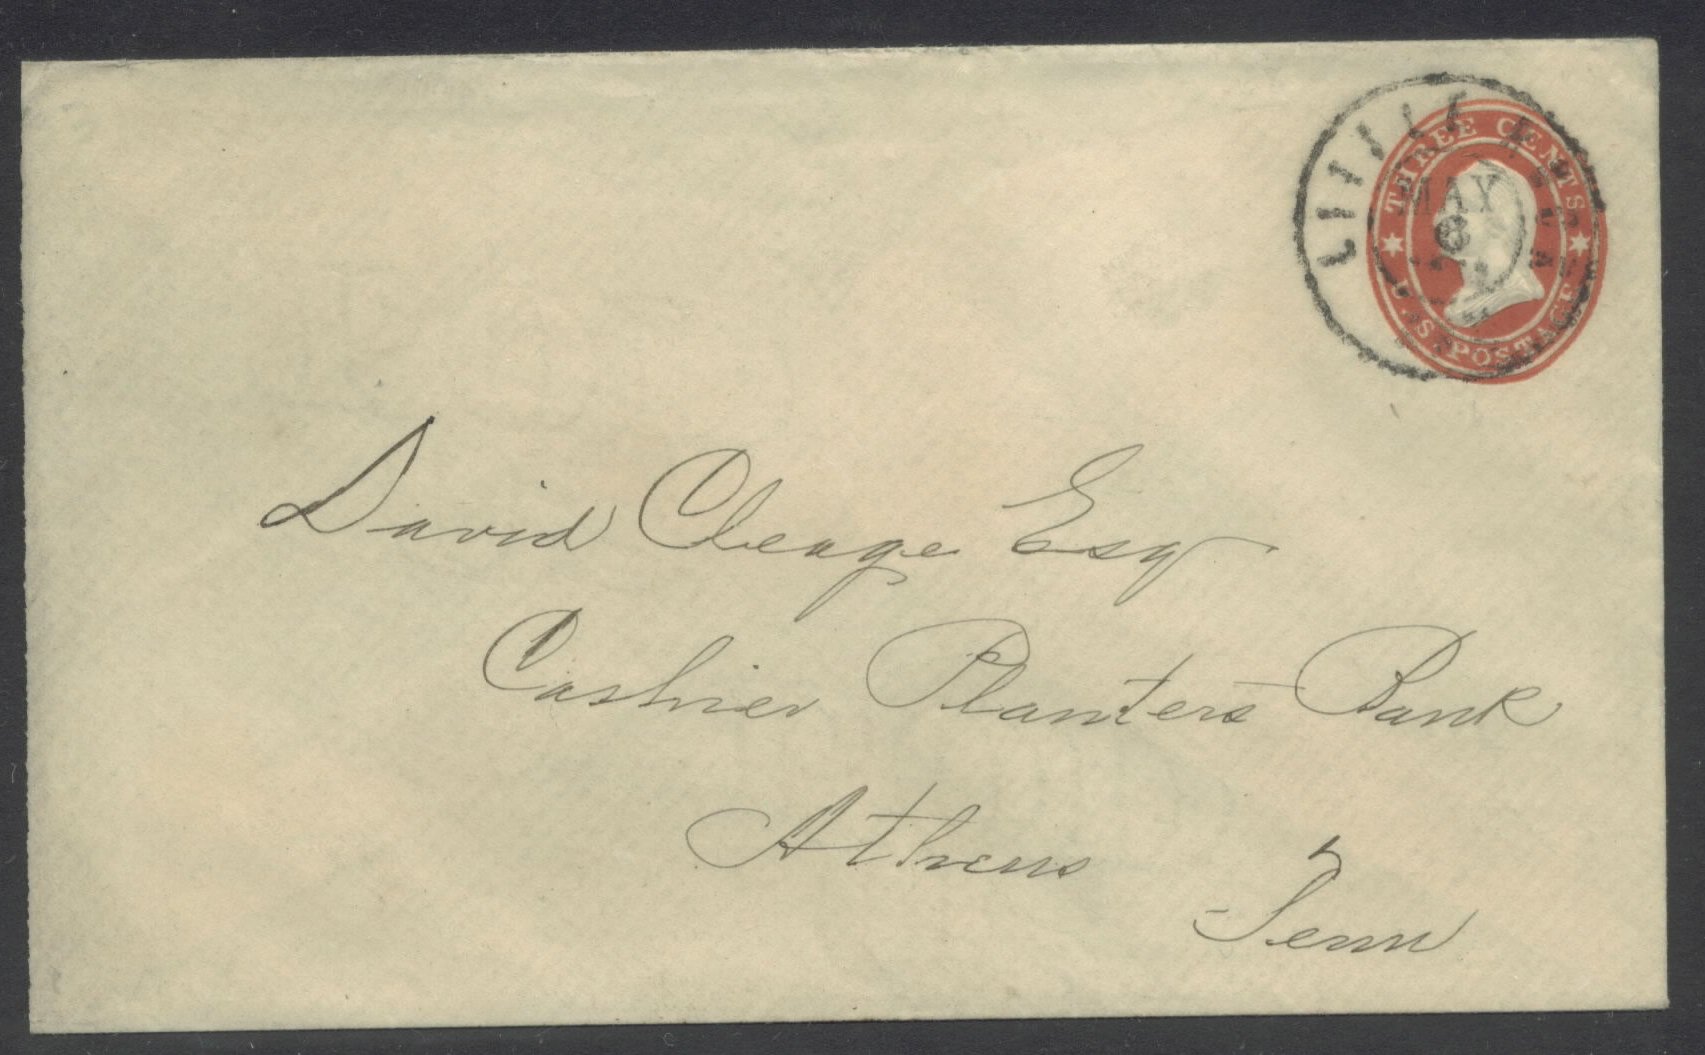 THREE CENTS
U.S. POSTAGE
MAY
8
David Cleage Esq
Cashier Planters Bank
Athens
Tenn